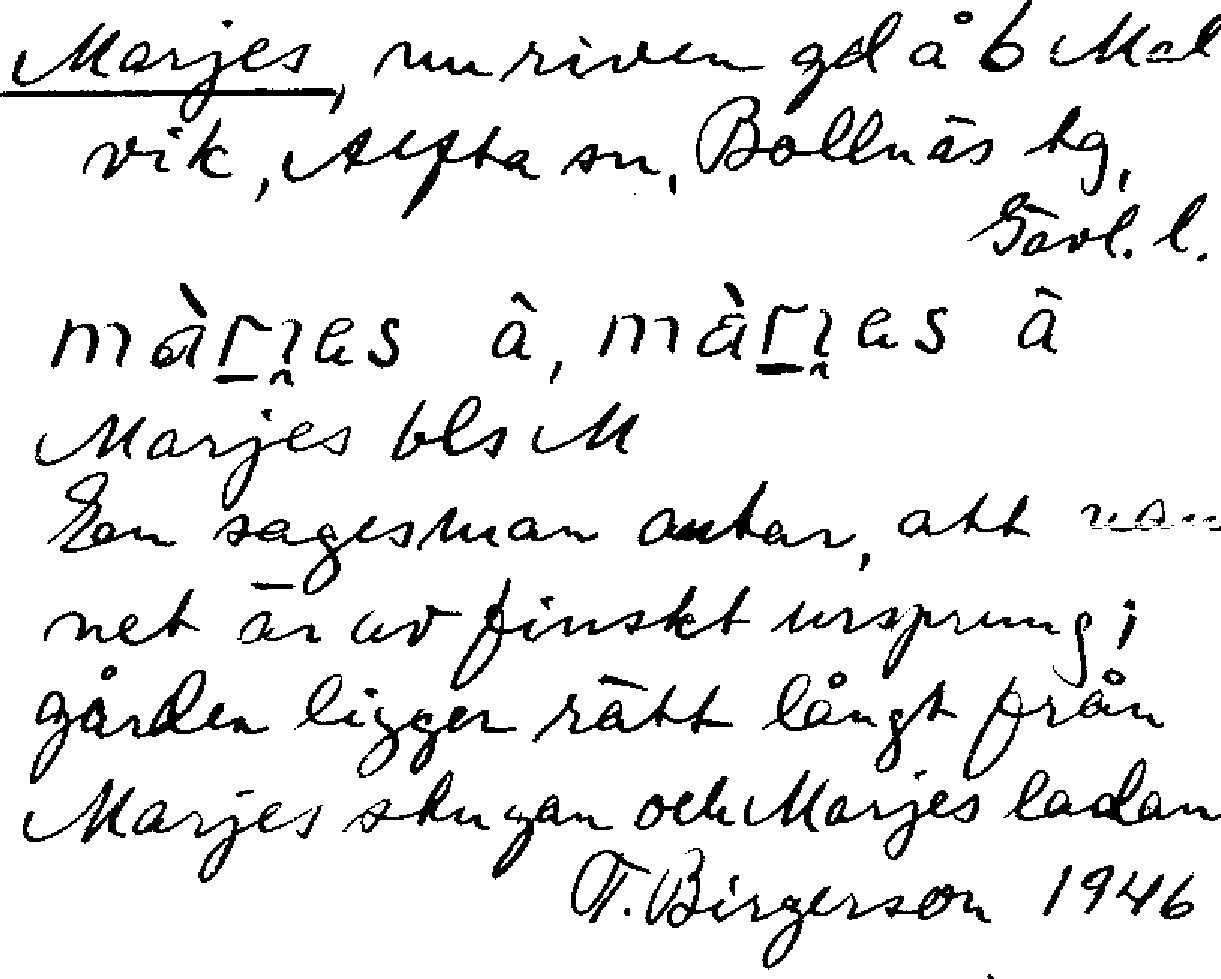 Marjes, nu riven gd å 6 Mal
vik, Alfta sn, Bollnäs tg,
Gävl. l.
Marjes bls M
En sagesman antar, att nam
net är av finskt ursprung;
gården ligger rätt långt från
Marjes stugan och Marjes ladan
T. Birgerson 1946